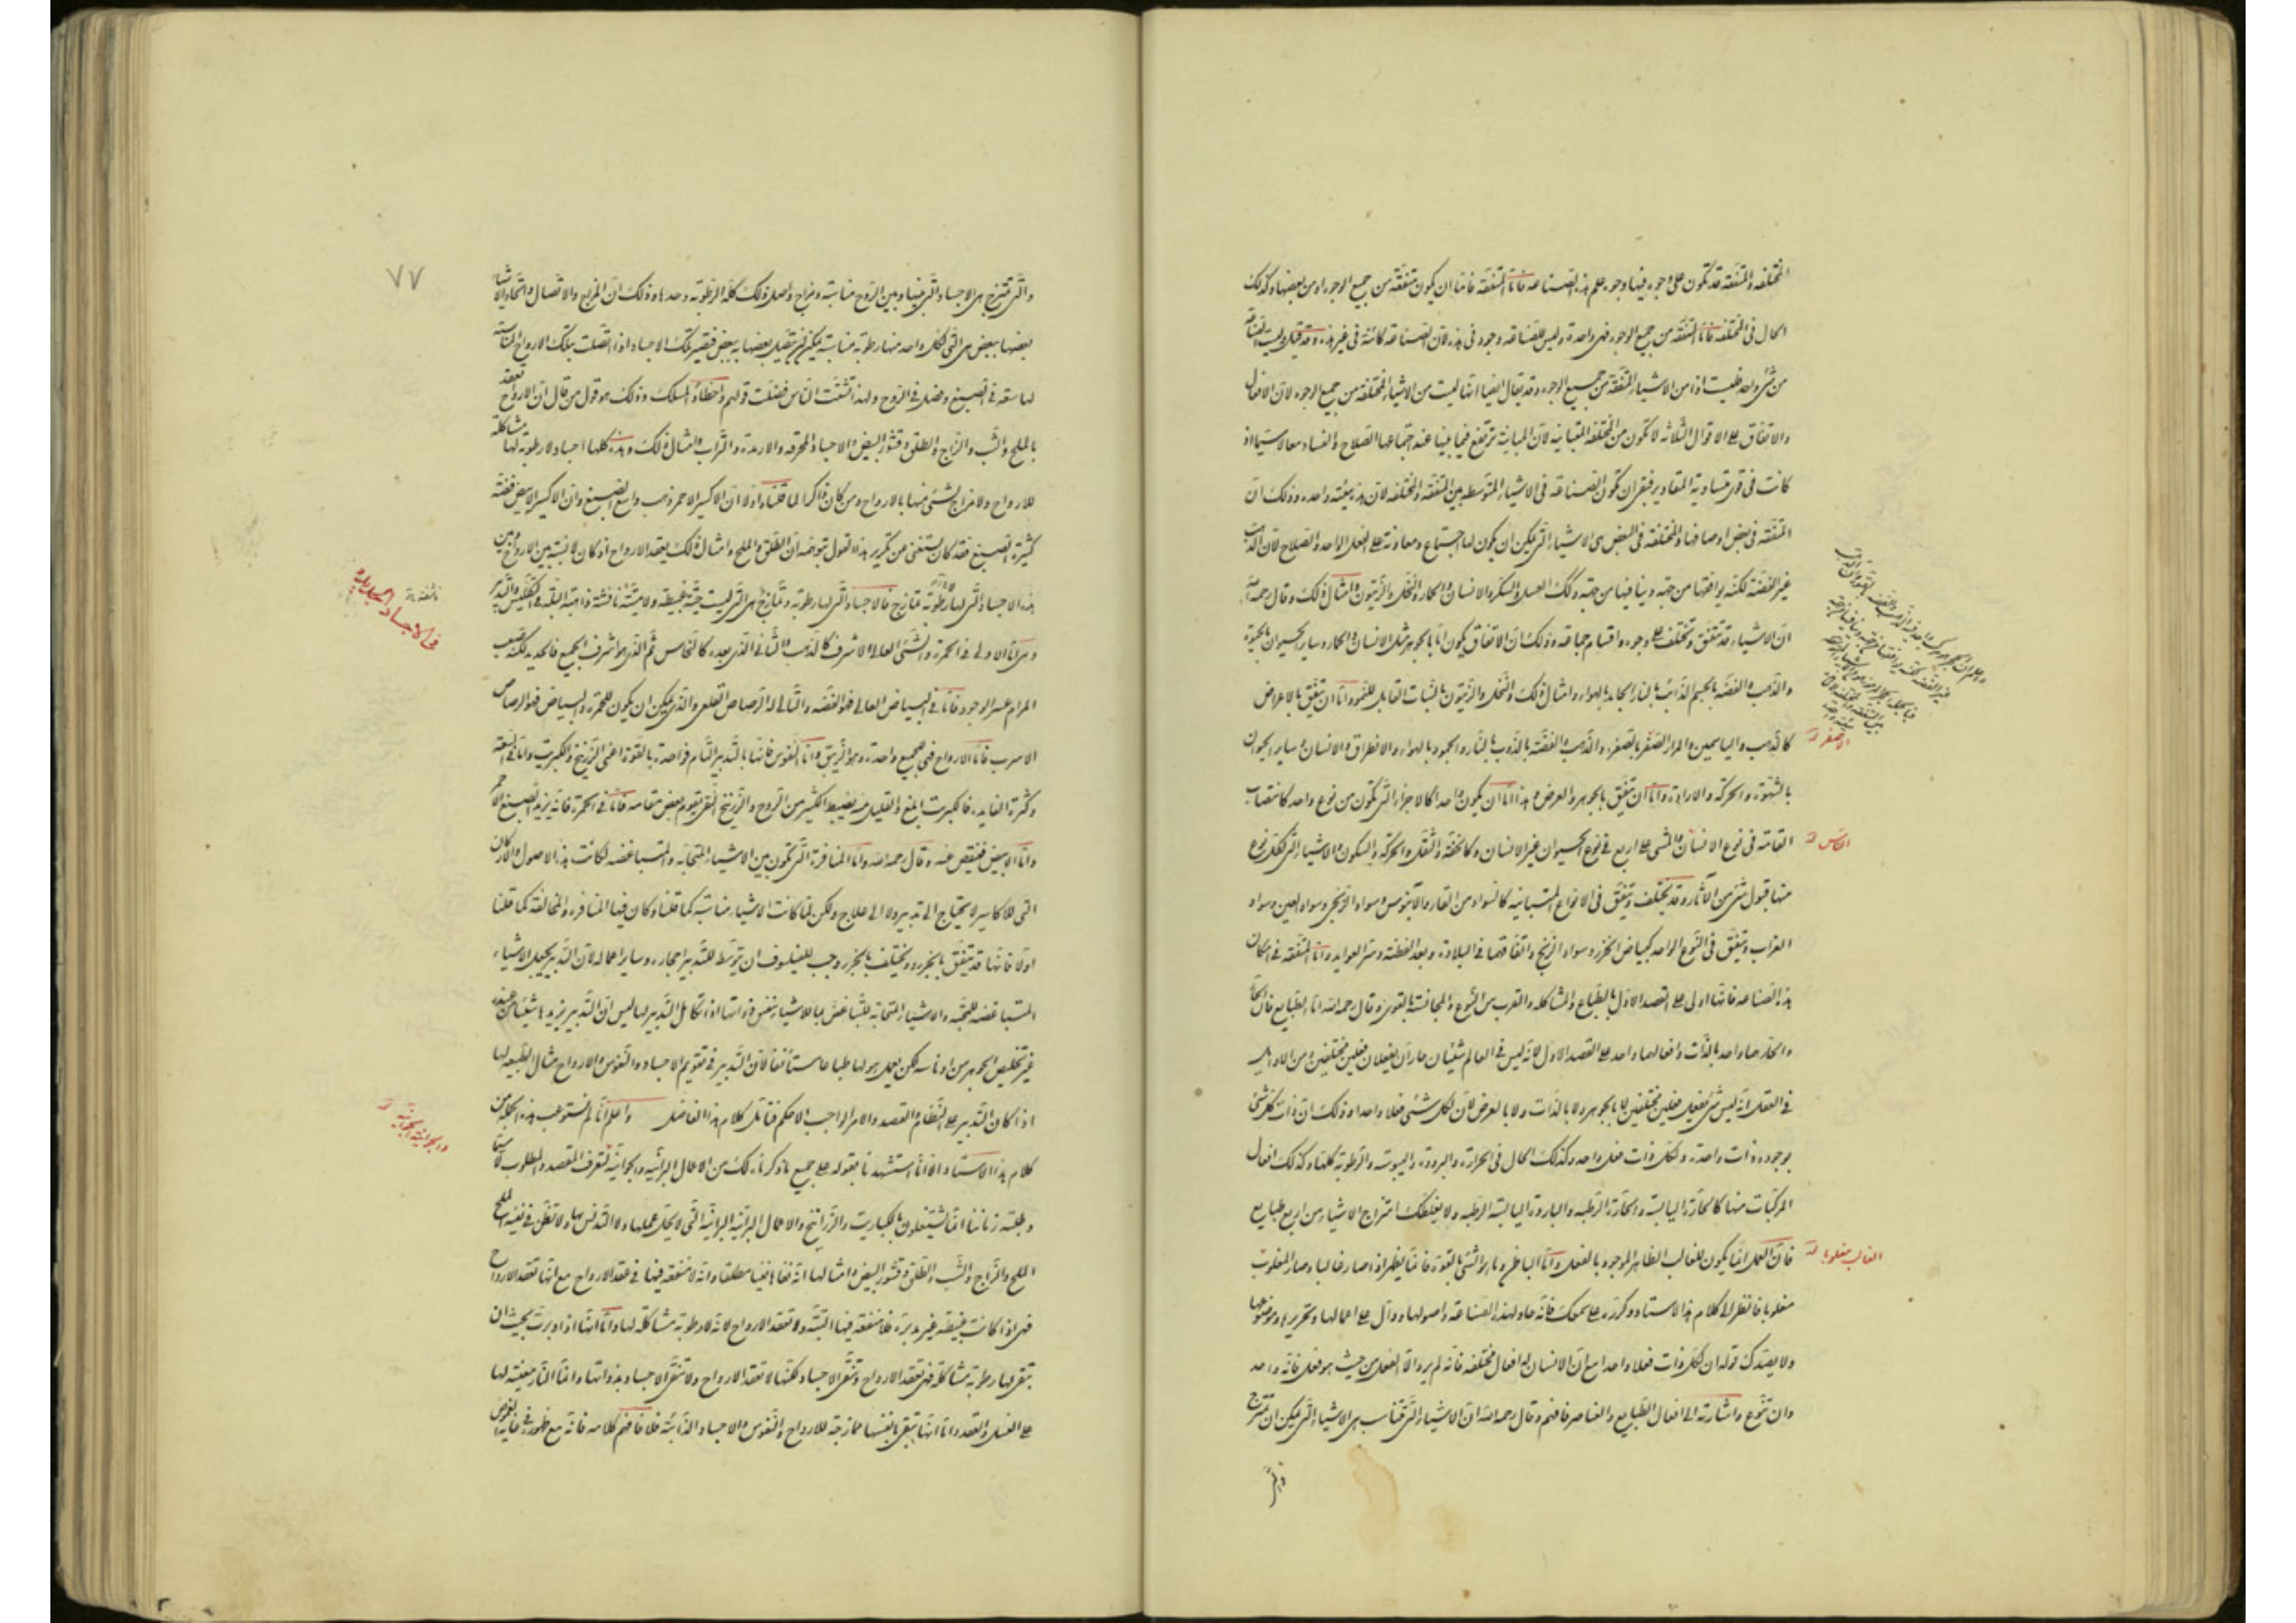 المختلفة والمتفقة قد تكون على وجوه فيها وجوه علم هذه الصناعة فاما المتفقة فاما ان يكون متفقة من جميع الوجوه او من بعضها وكذلك
الحال فى المختلفة فاما المتفقة من جميع الوجوه فهى واحدة وليس للصناعة وجود فى هذه لان الصناعة كائنة فى غير هذه وقد قيل وليست الصناعة
من شئ واحد فليست اذا من الاشياء المتفقة من جميع الوجوه وقد يقال ايضا انها ليست من الاشياء المختلفة من جميع الوجوه لان الافعال
والاتفاق على الاقوال الثلاثة لا تكون من المختلفة المتباينة لان المباينة ترتفع فيما بينها عند اجتماعها الصلاح والفساد معا لا سيما اذا
كانت فى قوى متساوية المقادير فبقى ان تكون الصناعة فى الاشياء المتوسطة بين المتفقة والمختلفة لان هذه بيئة واحدة وذلك ان
المتفقة فى بعض اوصافها والمختلفة فى البعض هى الاشياء التى يمكن ان يكون لها اجتماع ومعاونة على الفعل الواحد والصلاح لان الذهب
غير الفضة لكنه يوافقها من جهة وينافيها من جهة وكذلك العسل والسكر والانسان والحمار والنخل والزيتون وامثال ذلك وقال رحمه الله
ان الاشياء قد تتفق وتختلف على وجوه واقسام جماعة وذلك ان الاتفاق يكون اما بالجوهر مثل الانسان والحمار وساير الحيوان بالحيوة
والذهب والفضة بالجسم الذائب بالنار الجامد بالهواء وامثال ذلك والنخل والزيتون بالنبات القابل للنمو واما ان تتفق بالاعراض
كالذهب والياسمين والمرار الصفر بالصفرة والذهب والفضة بالذوب بالنار والجمود بالهواء والانطراق والانسان وساير الحيوان
بالشهوة والحركة والارادة واما ان تتفق بالجوهر والعرض وهذا اما ان يكون واحدا كالاجزاء التى تكون من نوع واحد كانتصاب
القامة فى نوع الانسان والمشى على اربع فى نوع الحيوان غير الانسان وكالخفة والثقل والحركة والسكون والاشياء التى لكل نوع
منها قبول شئ من الآثار وقد تختلف وتتفق فى الانواع المتباينة كالسواد من القار والآبنوس وسواد الزنجى وسواد العين وسواد
الغراب وتتفق فى النوع الواحد كبياض الخزر وسواد الزنج واتفاقهما فى البلادة وبعد الفطنة وشر العوايد واما المتفقة فى امكان
هذه الصناعة فانها اولى على القصد الاول بالطباع والمشاكلة والقرب من النوع والمجانسة بالقوى وقال رحمه الله اما الطبايع فان
والحار حار واحد بالذات وافعالهما واحد على القصد الاول لانه ليس فى العالم شيئان حاران يفعلان فعلين مختلفين ومن الاوايل
فى العقل انه ليس شئ يفعل فعلين مختلفين لا بالجوهر ولا بالذات ولا بالعرض لان لكل شئ فعلا واحدا وذلك ان ذات كل شئ
موجودة ذات واحدة ولكل ذات فعل واحد وكذلك الحال فى الحرارة والبرودة واليبوسة والرطوبة كلها وكذلك افعال
المركبات منها كالحارة اليابسة والحارة الرطبة والباردة اليابسة الرطبة ولا يغلطك امتزاج الاشياء من اربع طبايع
فان العمل انما يكون للغالب الظاهر الموجود بالفعل واما الباطن وما هو الشئ بالقوة فانما يظهر اذا صار غالبا وصار المغلوب
مغلوبا فانظر الى كلام هذا الاستاد وكرره على سمعك فانه حاو لهذه الصناعة واصولها ودال على اعمالها وتحريرها وموضوعها
ولا يصدك قوله ان لكل ذات فعلا واحدا مع ان الانسان له افعال مختلفة فانه لم يرد الا الفعل من حيث هو فعل فانه واحد
وان تنوع واشارته الى افعال الطبايع والعناصر فافهم وقال رحمه الله ان الاشياء التى تتناسب هى الاشياء التى يمكن ان تمتزج
والتى
الاصفر
الغالب مغلوبا
٧٧
والتى تمتزج هى الاجساد التى بينها وبين الروح مناسبة ومزاج واصل ذلك كله الرطوبة وحدها وذلك ان المزاج والاتصال واتحاد الاشياء
بعضها ببعض هى التى لكل واحد منها رطوبة مناسبة يمكن ان يتصل بعضها ببعض فتصير تلك الاجساد اذا اتصلت بتلك الارواح المناسبة
لها سعة فى الصبغ وفضل فى الروح ولهذا تشتت الناس فضلت قولهم واخطاؤا المسلك وذلك هو قول من قال ان الارواح تعقد
بالملح والشب والزاج والطلق وقشور البيض والاجساد المحرقة والارمدة والتراب وامثال ذلك وهذه كلها اجساد لا رطوبة لها مشاكلة
للارواح ولا مزاج لشئ منها بالارواح ومن كان ذاكرا لما قلناه اولا ان الاكسير الاحمر ذهب واسع الصبغ وان الاكسير الابيض فضة
كثيرة الصبغ فقد كان يستغنى من تكرير هذا القول بتوهمه ان الطلق والملح وامثال ذلك يعقد الارواح اذ كان لا نسبة بين الارواح وبين
هذه الاجساد التى لها رطوبة تمازج فالاجساد التى لها رطوبة وتمازج هى التى ليست حية غبيطة ولا ميتة ناشفة ذاهبة البلة فى التكليس والتدبير
وهى اما الاولى فى الحمرة والشئ العالى الاشرف كالذهب والثانى الذى بعده كالنحاس ثم الذى هو اشرف الجميع فالحديد لكنه صعب
المرام عسر الوجود فاما فى البياض العالى فهو الفضة والتالى له الرصاص القلعى والذى يمكن ان يكون للحمرة والبياض فهو الرصاص
الاسرب فاما الارواح فهى جميع واحدة وهو الزيبق واما النفوس فانها بالتدبير التام فواحدة بالقوة اعنى الزرنيخ والكبريت واما فى السعة
وكثرة الفايدة فالكبريت ابلغ والقليل منه يضبط الكثير من الروح والزرنيخ النقى يقوم بعض مقامه فاما فى الحمرة فانه يزيد الصبغ الاحمر
واما الابيض فينقص عنه وقال رحمه الله واما المنافرة التى تكون بين الاشياء المتحابة والمتباغضة لكانت هذه الاصول والاركان
التى للاكاسير لا يحتاج الى تدبير ولا الى علاج ولكن لما كانت الاشياء مناسبة كما قلنا وكان فيها المنافرة والمخالفة كما قلنا
اولا فانها قد تتفق بالجزء وتختلف بالجزء وجب للفيلسوف ان يتوسط للتدبير احجاره وساير اعماله لان التدبير يجعل الاشياء
المتباغضة للمحبة والاشياء المتحابة للتباغض بما للاشياء بنفس ذواتها اذا تكامل التدبير لها ليس ان التدبير يزيدها شيئا من عنده
غير تخليص الجوهر من اوساخه لكن يعمل هو لها طباعا مستأنفا لان التدبير فى تقويم الاجساد والنفوس والارواح مثال الطبيعة لها
اذا كان التدبير على النظام القصد والامر الواجب الاحكم فتأمل كلام هذا الفاضل واعلم انا لم نستوعب هذه الجملة من
كلام هذا الاستاد الا انا استشهدنا بقوله على جميع ما ذكرناه لك من الاعمال البرانية والجوانية لتعرف المقصد والمطلوب لا سيما
وطلبة زماننا انما يشتغلون بالكباريت والزرانيخ والاعمال البرانية البرانية التى لا يحل عملها ولا التدنس بها ولا تظن فى نفيه الملح
الملح والزاج والشب والطلق وقشور البيض وامثالها انه نفاها نفيا مطلقا وانه لا منفعة فيها فى عقد الارواح مع انها تعقد الارواح
فهى اذا كانت غبيطة غير مدبرة فلا منفعة فيها البتة ولا تعقد الارواح لانه لا رطوبة مشاكلة لها واما انها اذا دبرت بحيث ان
تبقى لها رطوبة مشاكلة فهى تعقد الارواح وتنقى الاجساد لكنها لا تعقد الارواح ولا تنقى الاجساد بذواتها وانما النار معينة لها
على الغسل والعقد واما انها تبقى بانفسها ممازجة للارواح والنفوس والاجساد الذائبة فلا فافهم كلامه فانه مع ظهوره فى غاية الغموض
ناشفة
فى الاجساد
والجوانية